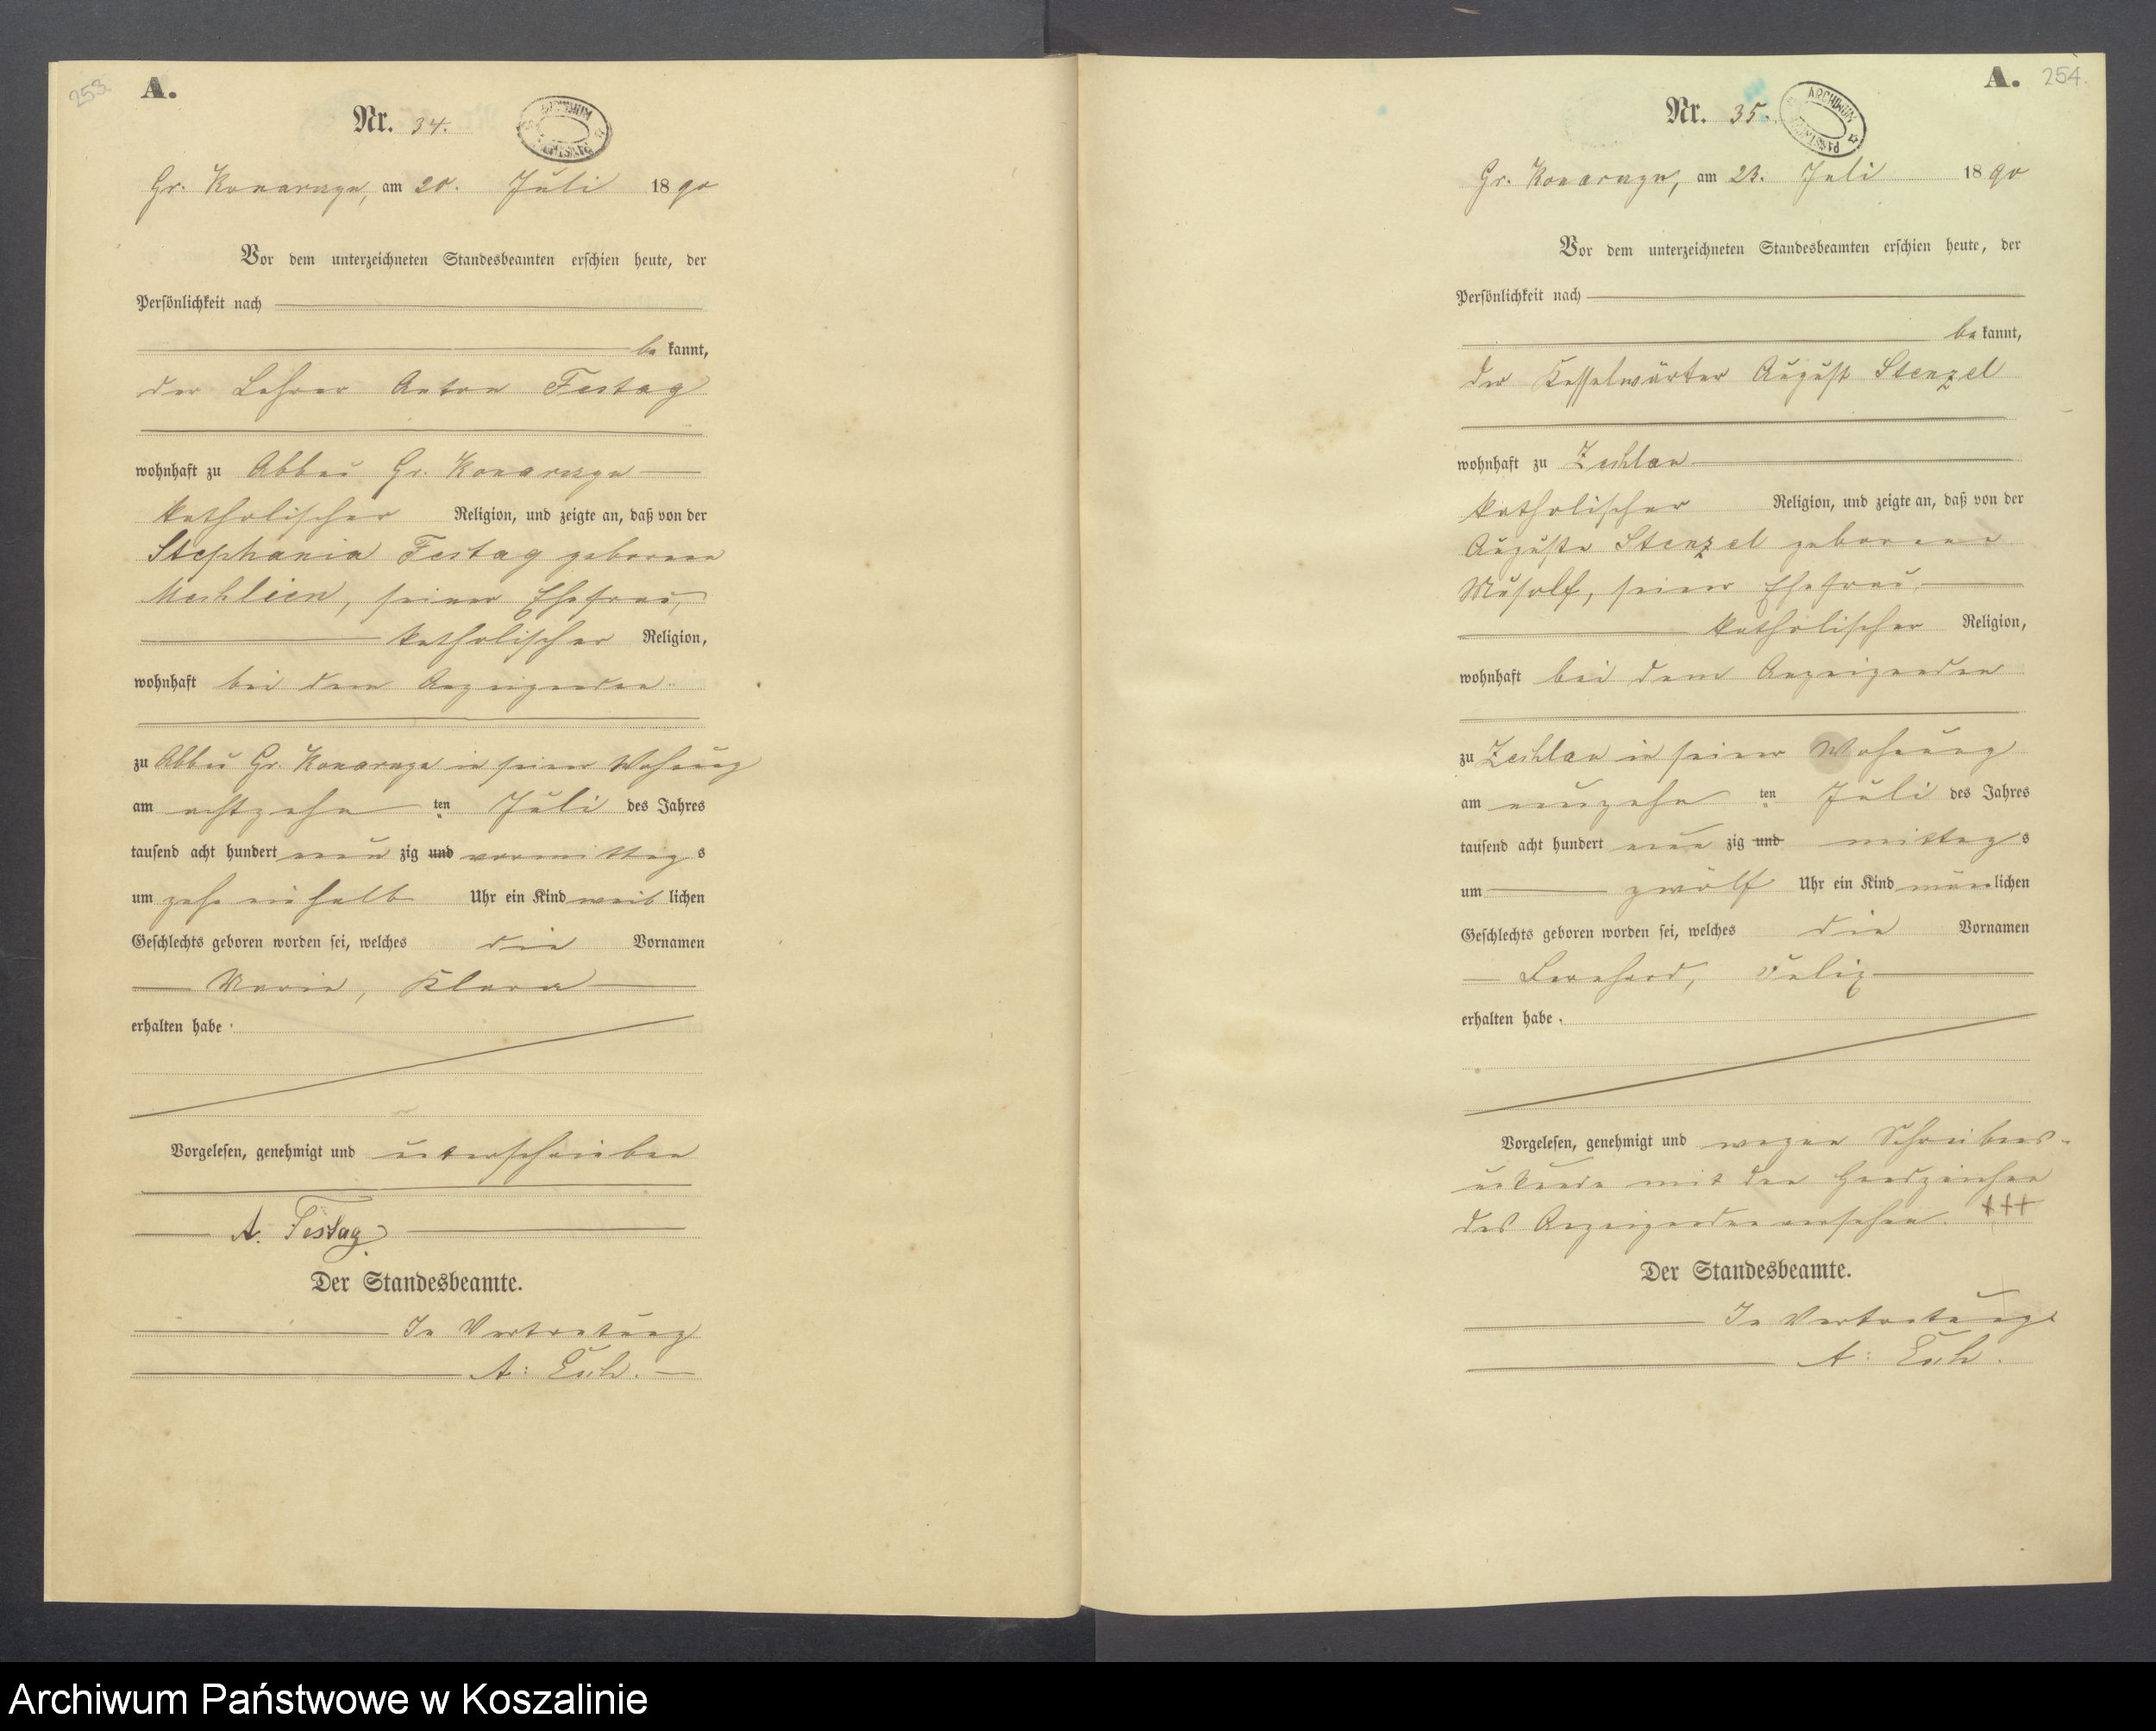 253.
A.
Nr. 34.
ARCHIWUM
Gr. Konarzyn, am 20. Juli 1890
Vor dem unterzeichneten Standesbeamten erschien heute, der
Persönlichkeit nach
be kannt,
der Lehrer Anton Festag
wohnhaft zu Abbau Gr. Konarzyn
katholischer Religion, und zeigte an, daß von der
Stephania Festag geborene
seiner Ehefrau,
katholischer Religion,
wohnhaft bei dem Anzeigenden
zu Abbau Gr. Konarzyn in seiner Wohnung
am achtzehn ten Juli des Jahres
tausend acht hundert neun zig und vormittag s
um zehn ein halb Uhr ein Kind weib lichen
Geschlechts geboren worden sei, welches die Vornamen
Maria, Klara
erhalten habe.
Vorgelesen, genehmigt und unterschrieben
A. Festag
Der Standesbeamte.
In Vertretung
A:
A. 254.
Nr. 35.
ARCHIWUM PAŃSTW
Gr. Konarzyn, am 23. Juli 1890
Vor dem unterzeichneten Standesbeamten erschien heute, der
Persönlichkeit nach
be kannt,
der Kesselwärter August Stenzel
wohnhaft zu Zechlau
katholischer Religion, und zeigte an, daß von der
Auguste Stenzel geborene
Musolf, seiner Ehefrau,
katholischer Religion,
wohnhaft bei dem Anzeigenden
zu Zechlau in seiner Wohnung
am neunzehn ten Juli des Jahres
tausend acht hundert neun zig und mittag s
um zwölf Uhr ein Kind männlichen
Geschlechts geboren worden sei, welches die Vornamen
Bernhard, Felix
erhalten habe.
Vorgelesen, genehmigt und wegen Schreibens-
unkunde mit den Handzeichen
des Anzeigenden versehen. +++
Der Standesbeamte.
In Vertretung
A:
Archiwum Państwowe w Koszalinie